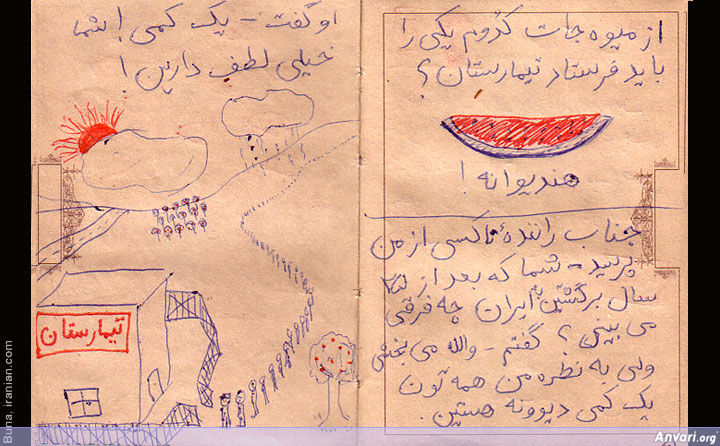 از میوه جات کدوم یکی را
باید فرستاد تیمارستان؟
هندیوانه!
جناب رانندهٔ تاکسی از من
پرسید - شما که بعد از
سال برگشتین به ایران چه فرقی
می بینی؟ گفتم - والله می بخشی
ولی به نظره من همه تون
یک کمی دیوونه هستین.
او گفت - یک کمی! شما
خیلی لطف دارین!
تیمارستان
Buna. iranian.com
Anvari.org